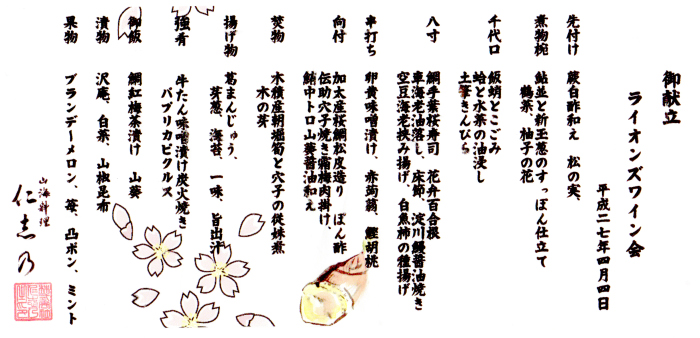 御献立
ライオンズワイン会
平成二七年四月四日
先付け 蕨白酢和え 松の実、
煮物椀 鮎並と新玉葱のすっぽん仕立て
鶴菜、柚子の花
千代口 飯蛸とこごみ
蛤と水菜の油浸し
土筆きんぴら
八寸 鯛手葉桜寿司 花弁百合根
車海老油落し、床節、淀川鰻醤油焼き
空豆海老挟み揚げ、白魚柿の種揚げ
串打ち 卵黄味噌漬け、赤蒟蒻、鰹胡桃
向付 加太産桜鯛松皮造り ぽん酢
伝助穴子焼き霜梅肉掛け、
鮪中トロ山葵醤油和え
焚物 木積産朝堀筍と穴子の従妹煮
木の芽
揚げ物 葛まんじゅう、
芽葱、海苔、一味、旨出汁
強肴 牛たん味噌漬け炭火焼き
パプリカピクルス、
御飯 鯛紅梅茶漬け 山葵
漬物 沢庵、白菜、山椒昆布
果物 ブランデーメロン、苺、凸ポン、ミント
山海料理
仁志乃